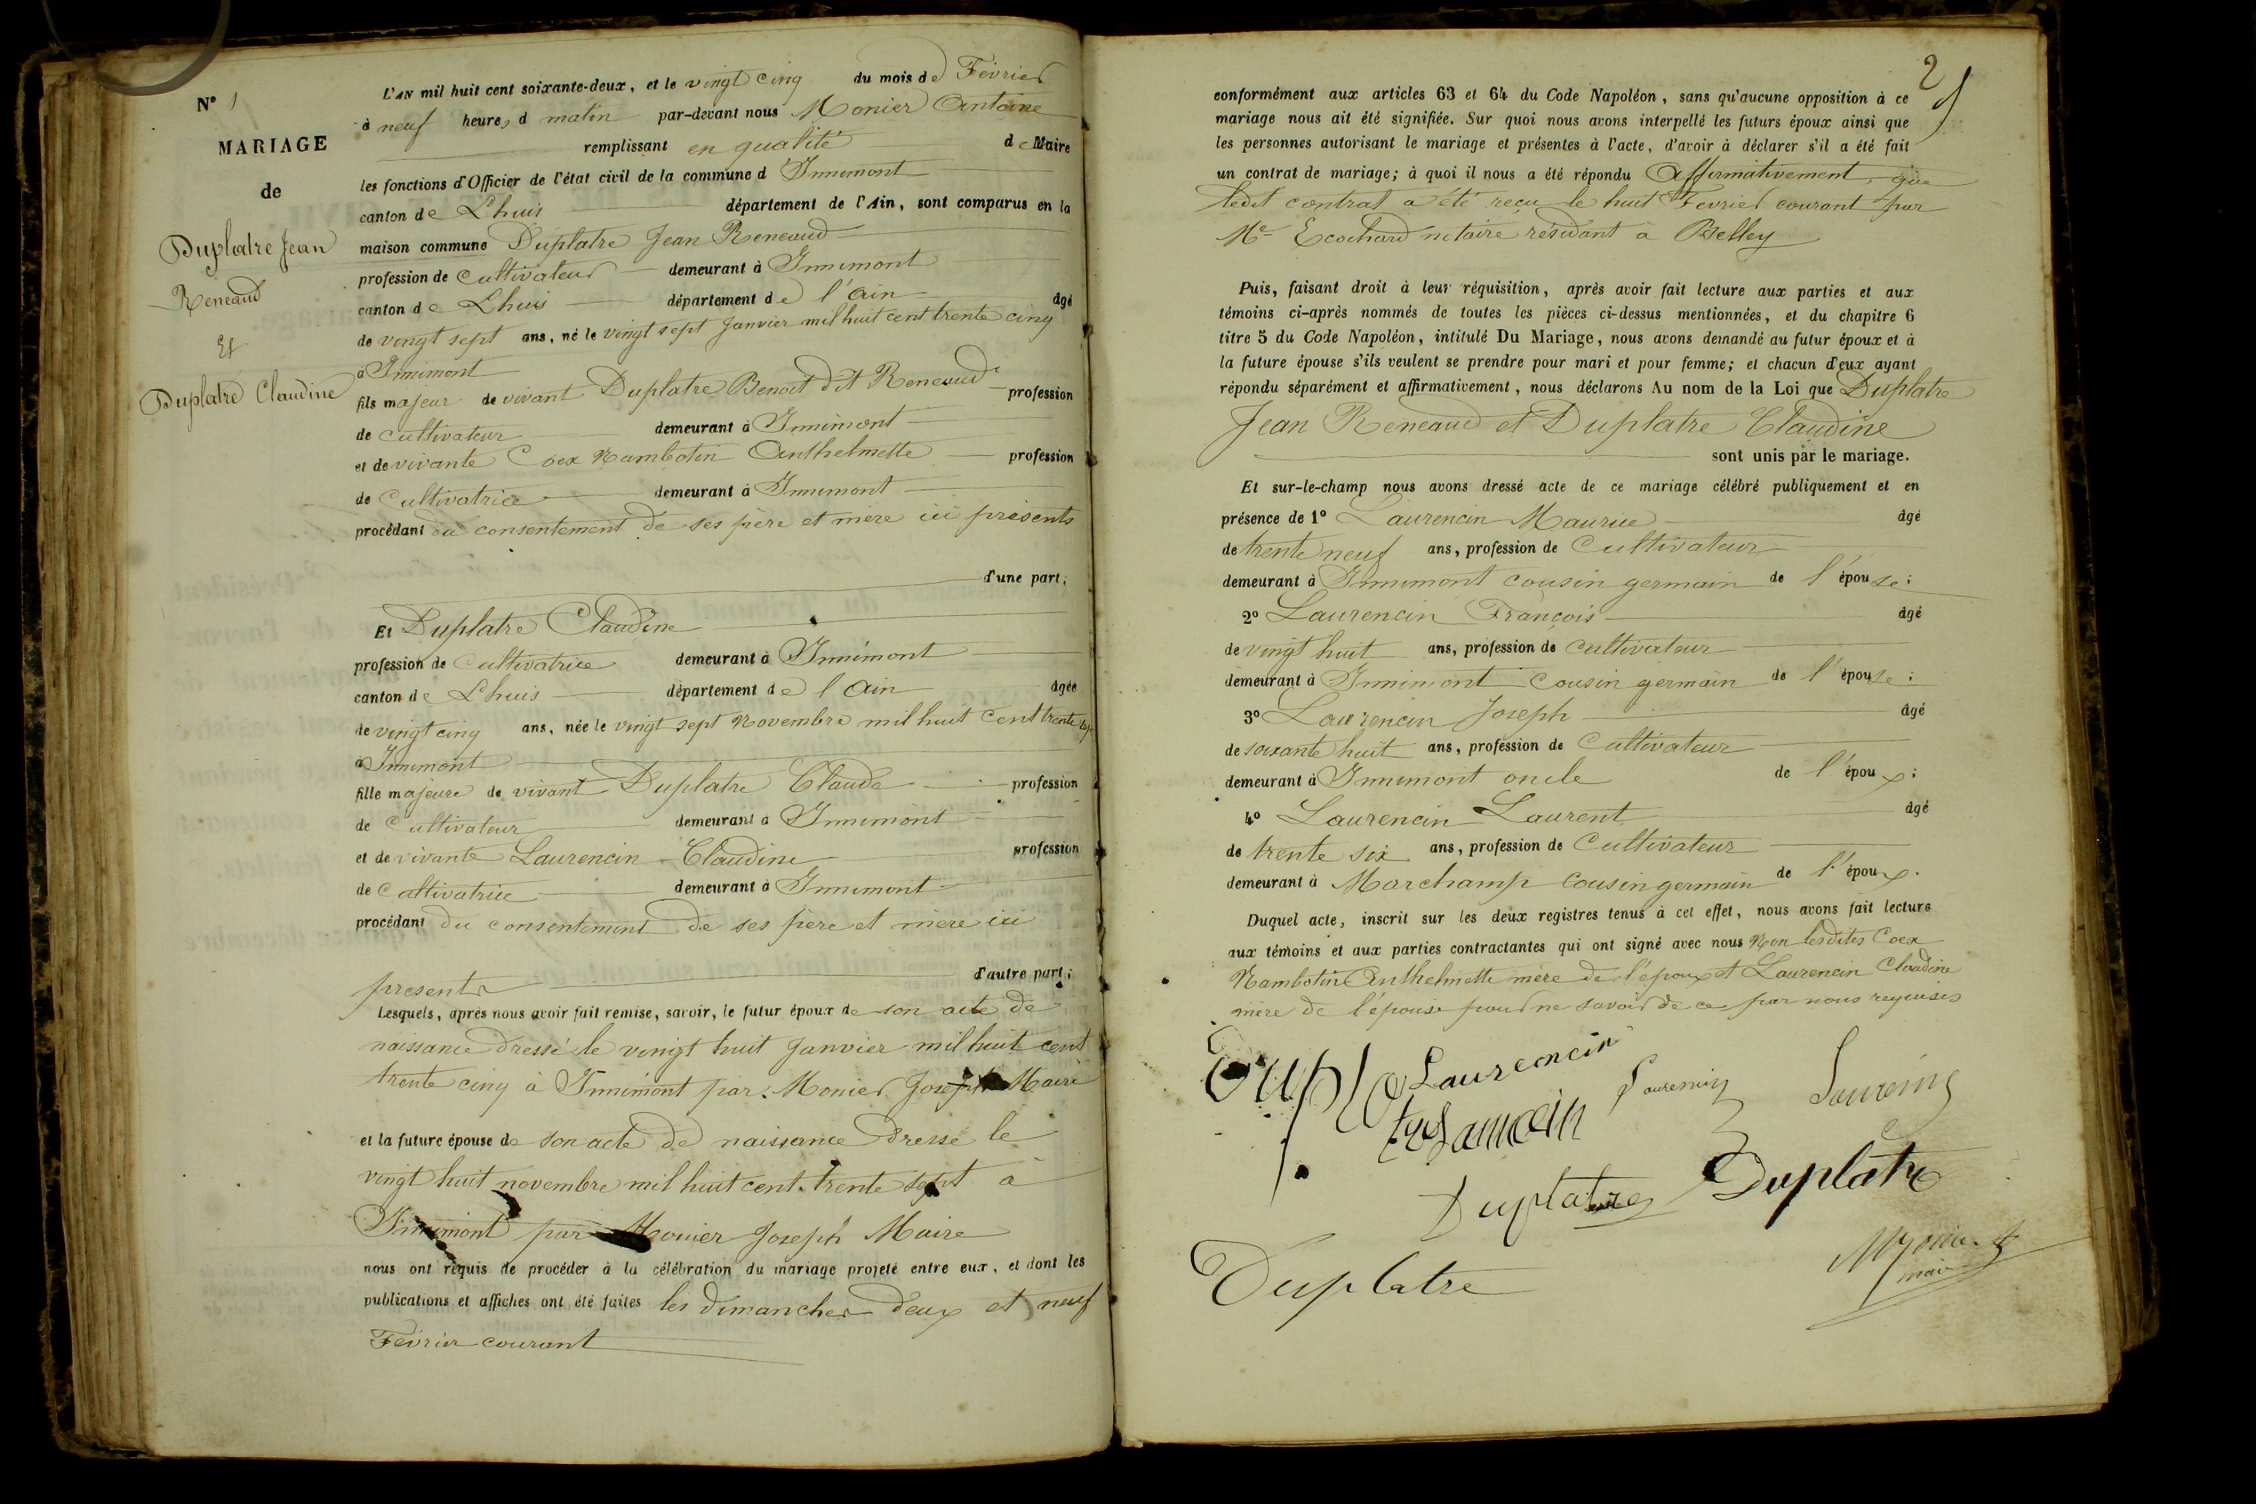 N° 1
MARIAGE
de
Duplatre Jean
Réneaud
Et
Duplatre Claudine
L'AN mil huit cent soixante-deux, et le vingt cinq du mois de Février
à neuf heures d matin par-devant nous Monier Antoine
remplissant en qualité de Maire
les fonctions d'Officier de l'état civil de la commune d Innimont
canton de Lhuis département de l'Ain, sont comparus en la
maison commune Duplatre Jean Reneaud
profession de Cultivateur demeurant à Innimont
canton de Lhuis département de l'Ain âgé
de vingt sept ans, né le vingt sept Janvier mil huit cent trente cinq
à Innimont
fils majeur de vivant Duplatre Benoit dit Reneaud profession
de Cultivateur demeurant à Innimont
et de vivante Coex Nambotin Anthelmette profession
de Cultivatrice demeurant à Innimont
procédant du consentement de ses père et mère ici présents
d'une part;
Et Duplatre Claudine
profession de Cultivatrice demeurant à Innimont
canton de Lhuis département de l'Ain âgée
de vingt cinq ans, née le vingt sept Novembre mil huit cent trente sept
à Innimont
fille majeure de vivant Duplatre Claude profession
de Cultivateur demeurant à Innimont
et de vivante Laurencin Claudine profession
de Cultivatrice demeurant à Innimont
procédant du consentement de ses père et mère ici
presents d'autre part;
Lesquels, après nous avoir fait remise, savoir, le futur époux de son acte de
naissance dressé le vingt huit Janvier mil huit cent
trente cinq à Innimont par Monier Joseph Maire
et la future épouse de son acte de naissance dressé le
vingt huit novembre mil huit cent trente sept à
Innimont par Monier Joseph Maire
nous ont requis de procéder à la célébration du mariage projeté entre eux, et dont les
publications et affiches ont été faites les dimanches deux et neuf
Février courant
2
conformément aux articles 63 et 64 du Code Napoléon, sans qu'aucune opposition à ce
mariage nous ait été signifiée. Sur quoi nous avons interpellé les futurs époux ainsi que
les personnes autorisant le mariage et présentes à l'acte, d'avoir à déclarer s'il a été fait
un contrat de mariage; à quoi il nous a été répondu Affirmativement, que
ledit contrat a été reçu le huit Fevrier courant par
Me Ecochard notaire résidant à Belley
Puis, faisant droit à leur réquisition, après avoir fait lecture aux parties et aux
témoins ci-après nommés de toutes les pièces ci-dessus mentionnées, et du chapitre 6
titre 5 du Code Napoléon, intitulé Du Mariage, nous avons demandé au futur époux et à
la future épouse s'ils veulent se prendre pour mari et pour femme; et chacun d'eux ayant
répondu séparément et affirmativement, nous déclarons Au nom de la Loi que Duplatre
Jean Reneaud et Duplatre Claudine
sont unis par le mariage.
Et sur-le-champ nous avons dressé acte de ce mariage célébré publiquement et en
présence de 1° Laurencin Maurice âgé
de trente neuf ans, profession de Cultivateur
demeurant à Innimont cousin germain de l'épouse;
2° Laurencin François âgé
de vingt huit ans, profession de Cultivateur
demeurant à Innimont cousin germain de l'épouse;
3° Laurencin Joseph âgé
de soixante huit ans, profession de Cultivateur
demeurant à Innimont oncle de l'époux;
4° Laurencin Laurent âgé
de trente six ans, profession de Cultivateur
demeurant à Marchamp cousin germain de l'époux.
Duquel acte, inscrit sur les deux registres tenus à cet effet, nous avons fait lecture
aux témoins et aux parties contractantes qui ont signé avec nous Non lesdites Coex
Nambotin Anthelmette mère de l'époux et Laurencin Claudine
mère de l'épouse pour ne savoir de ce par nous requises
Laurencin
Duplatre
Duplatre
Duplatre
maire